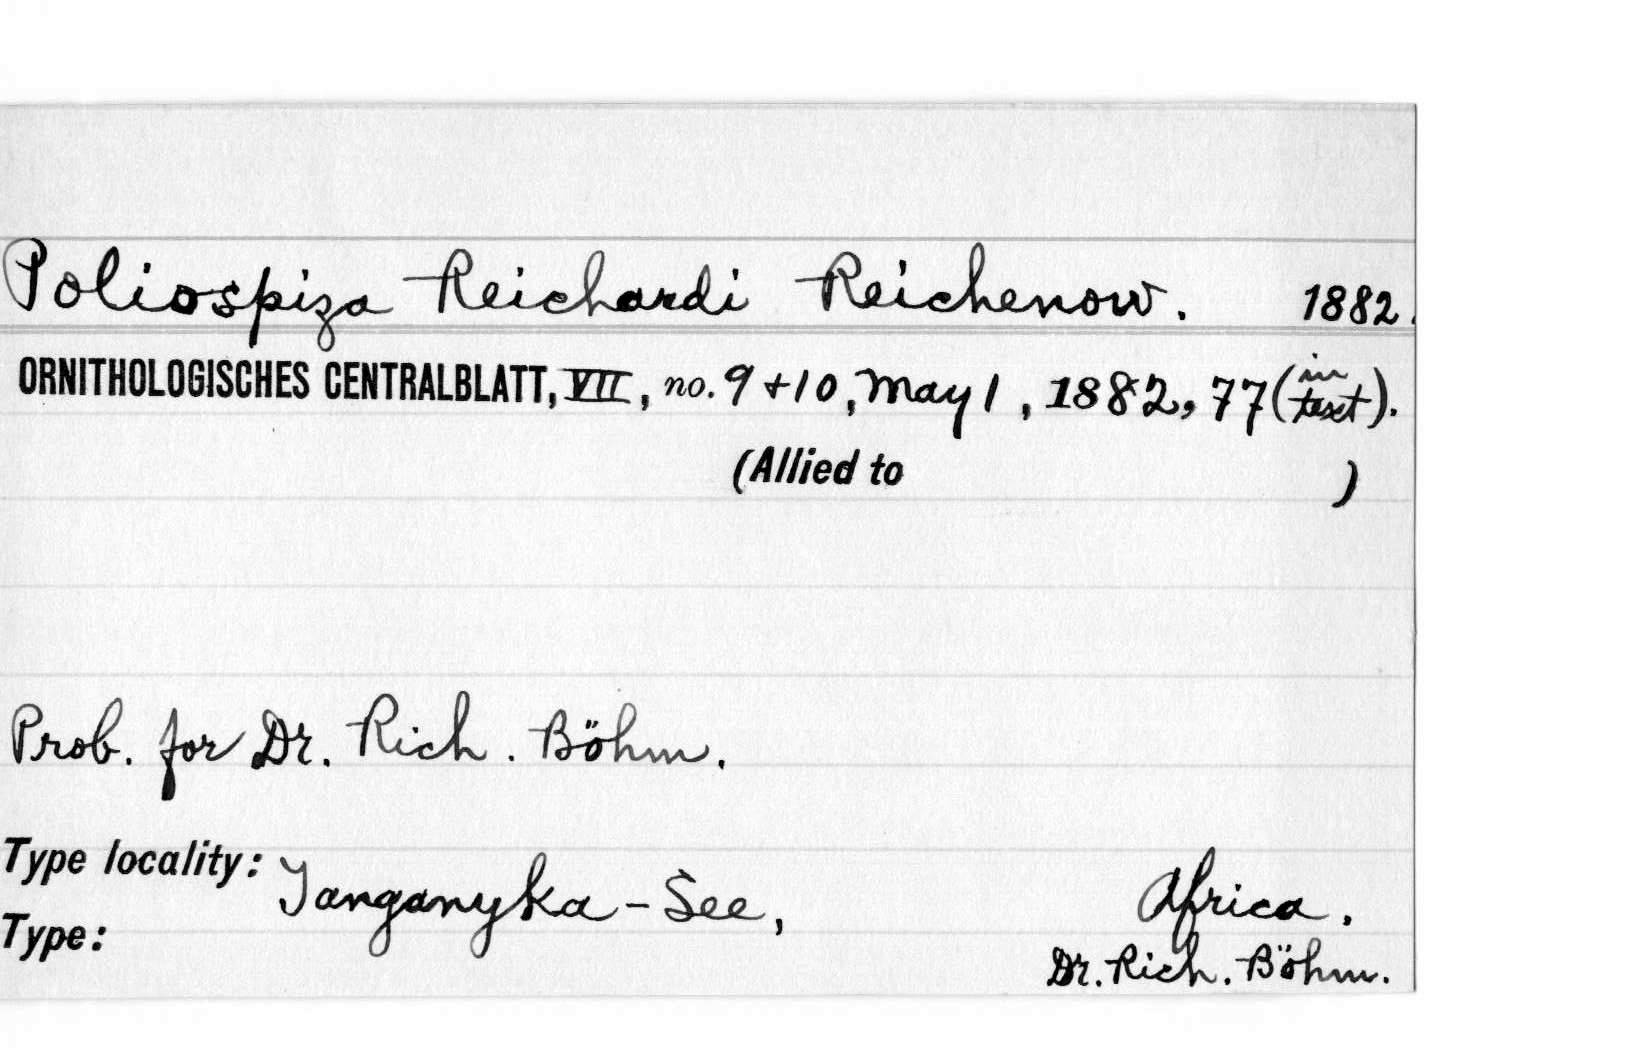 Poliospiza Reichardi Reichenow. 1882.
ORNITHOLOGISCHES CENTRALBLATT, VII, no. 9 + 10, May 1, 1882, 77 (in text).
(Allied to )
Prob. for Dr. Rich. Böhm.
Type locality: Tanganyka - See, Africa.
Type: Dr. Rich. Böhm.